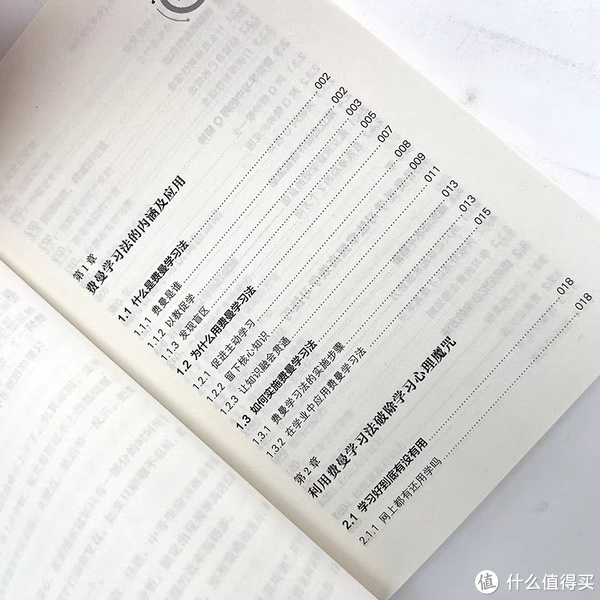 第1章
费曼学习法的内涵及应用
1.1 什么是费曼学习法 002
1.1.1 费曼是谁 002
1.1.2 以教促学 003
1.1.3 发现盲区 005
1.2 为什么用费曼学习法 007
1.2.1 促进主动学习 008
1.2.2 留下核心知识 009
1.2.3 让知识融会贯通 011
1.3 如何实施费曼学习法 013
1.3.1 费曼学习法的实施步骤 013
1.3.2 在学业中应用费曼学习法 015
第2章
利用费曼学习法破除学习心理魔咒
2.1 学习好到底有没有用 018
2.1.1 网上都有还用学吗 018
值 什么值得买